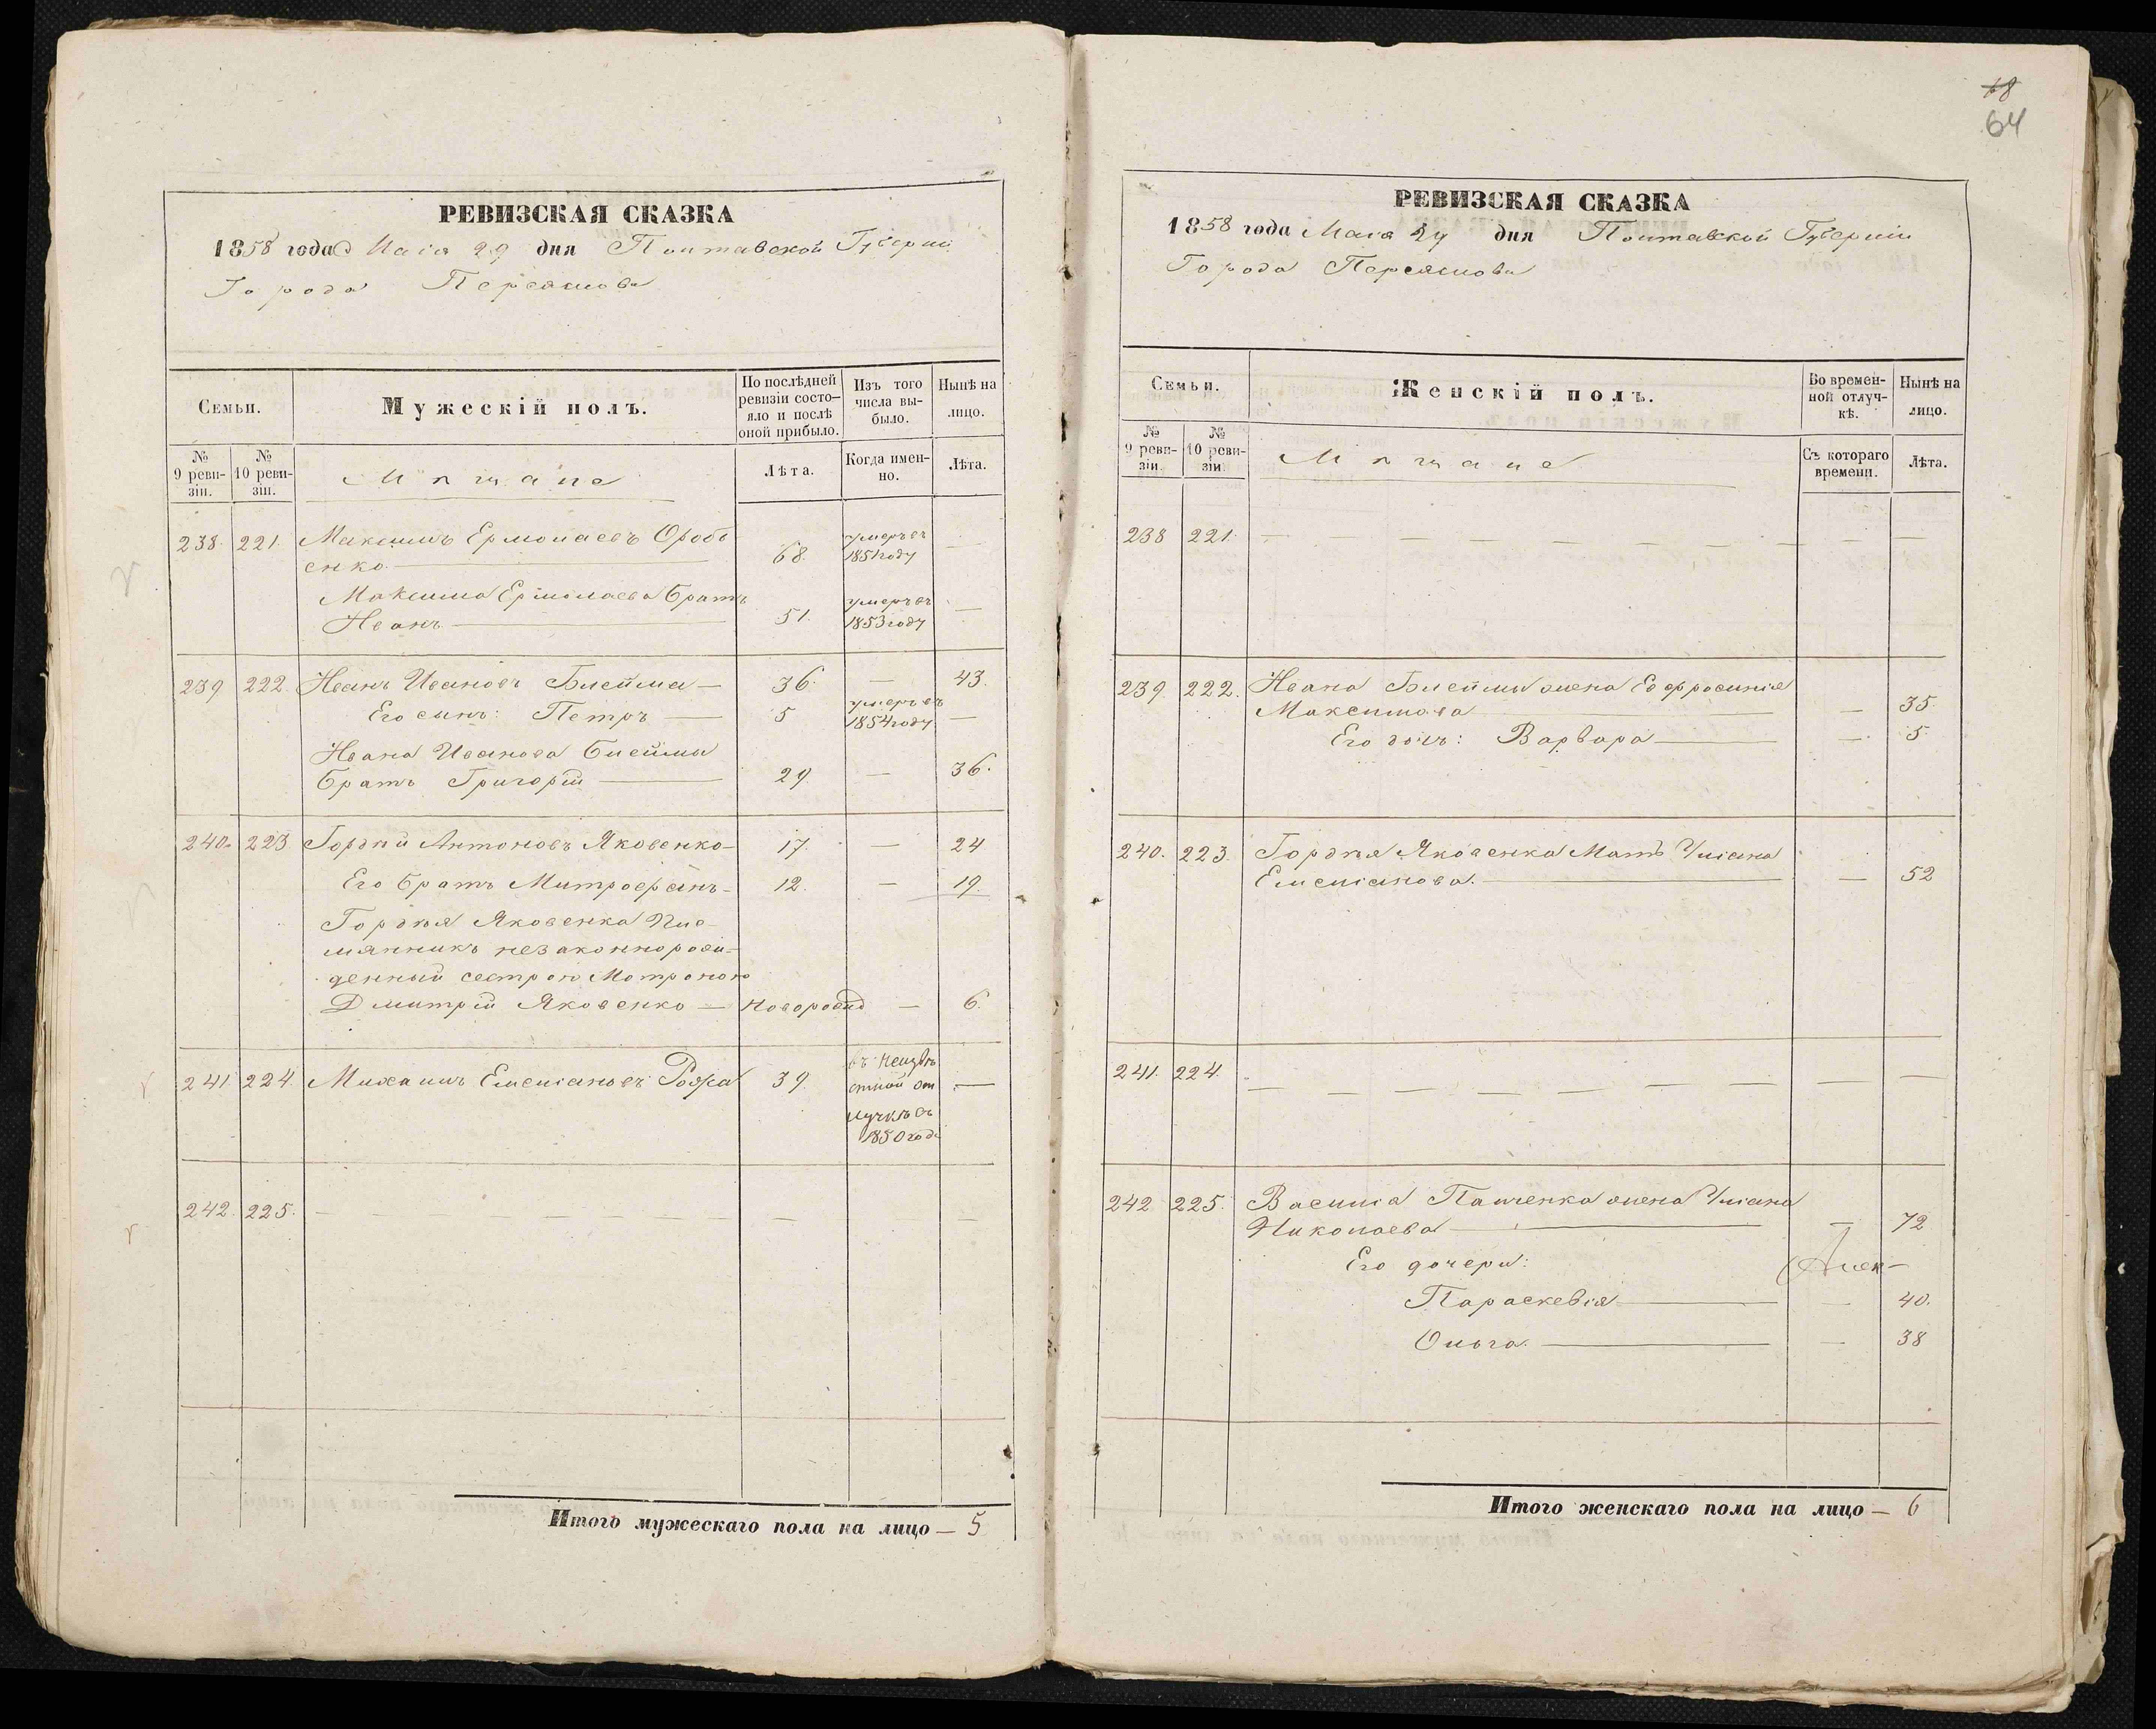 РЕВИЗСКАЯ СКАЗКА
1858 года Маія 29 дня Полтавской Губерніи
Города Переяслова
Семьи.
Мужескій полъ.
По послѣдней ревизіи состо-
яло и послѣ
оной прибыло.
Изъ того
числа вы-
было.
Нынѣ на
лицо.
№
9 реви-
зіи.
№
10 реви-
зіи.
Мѣщане
Лѣта.
Когда имен-
но.
Лѣта.
238. 221. Максимъ Ермолаевъ Оробо
енко — 68. умеръ въ 1851 году —
Максима Ермолаева братъ
Иванъ — 51. умеръ въ 1853 году —
239 222. Иванъ Ивановъ Блейма — 36. — 43.
Его сынъ: Петръ — 5 умеръ въ 1854 году —
Ивана Иванова Блеймы
братъ Григорій — 29. — 36.
240. 223 Гордѣй Антоновъ Яковенко — 17. — 24
Его братъ Митрофанъ — 12. — 19.
Гордѣя Яковенка пле-
мянникъ незаконнорож-
денный сестрою Мотроною
Дмитрій Яковенко — новорожд — 6.
241 224. Михаилъ Емельяновъ Рожа 39. въ неизвѣ
стной от
лучкѣ съ
1850 года —
242. 225. — — — — — — — — —
Итого мужескаго пола на лицо — 5
68
64
РЕВИЗСКАЯ СКАЗКА
1858 года Маія 29 дня Полтавской Губерніи
Города Переяслова
Семьи.
Женскій полъ.
Во времен-
ной отлуч-
кѣ.
Нынѣ на
лицо.
№
9 реви-
зіи.
№
10 реви-
зіи.
Мѣщане
Съ котораго
времени.
Лѣта.
238 221. — — — — — — — — —
239. 222. Ивана Блеймы жена Евфросинія
Максимова — — 35.
Его дочь: Варвара — — 5
240. 223. Гордѣя Яковенка мать Уліана
Емеліанова. — — 52
241. 224. — — — — — — — —
242 225. Василія Панченка жена Уліана
Николаева — — 72
Его дочери:
Алек-
Параскевія — — 40.
Ольга. — — 38
Итого женскаго пола на лицо — 6